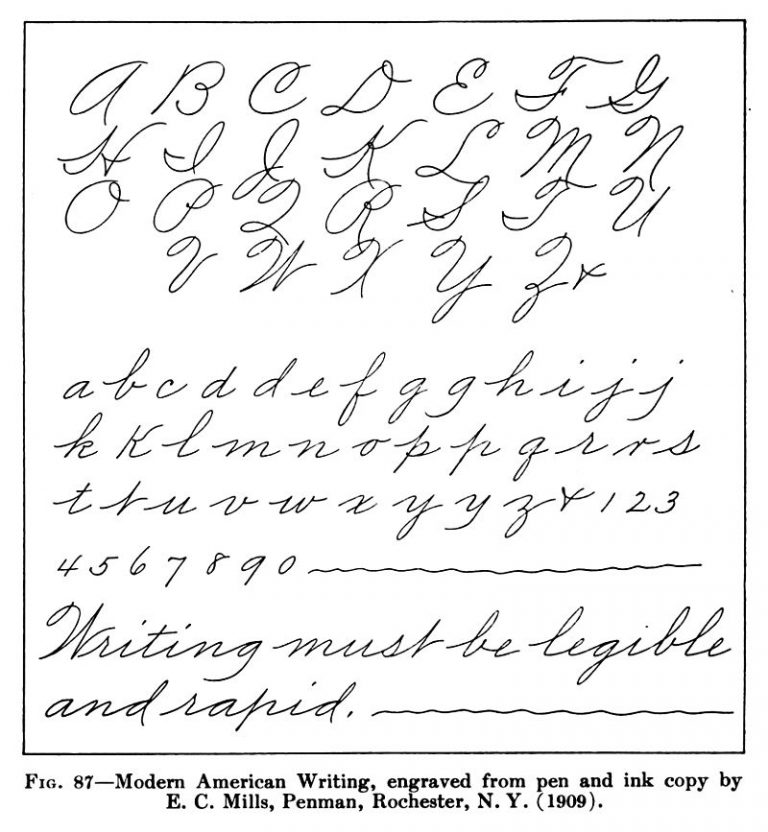 A B C D E F G
H I J K L M N
O P Q R S T U
V W X Y Z &
a b c d d e f g g h i j j
k K l m n o p p q r r s
t t u v w x y y z & 1 2 3
4 5 6 7 8 9 0
Writing must be legible
and rapid.
FIG. 87—Modern American Writing, engraved from pen and ink copy by
E. C. Mills, Penman, Rochester, N. Y. (1909).